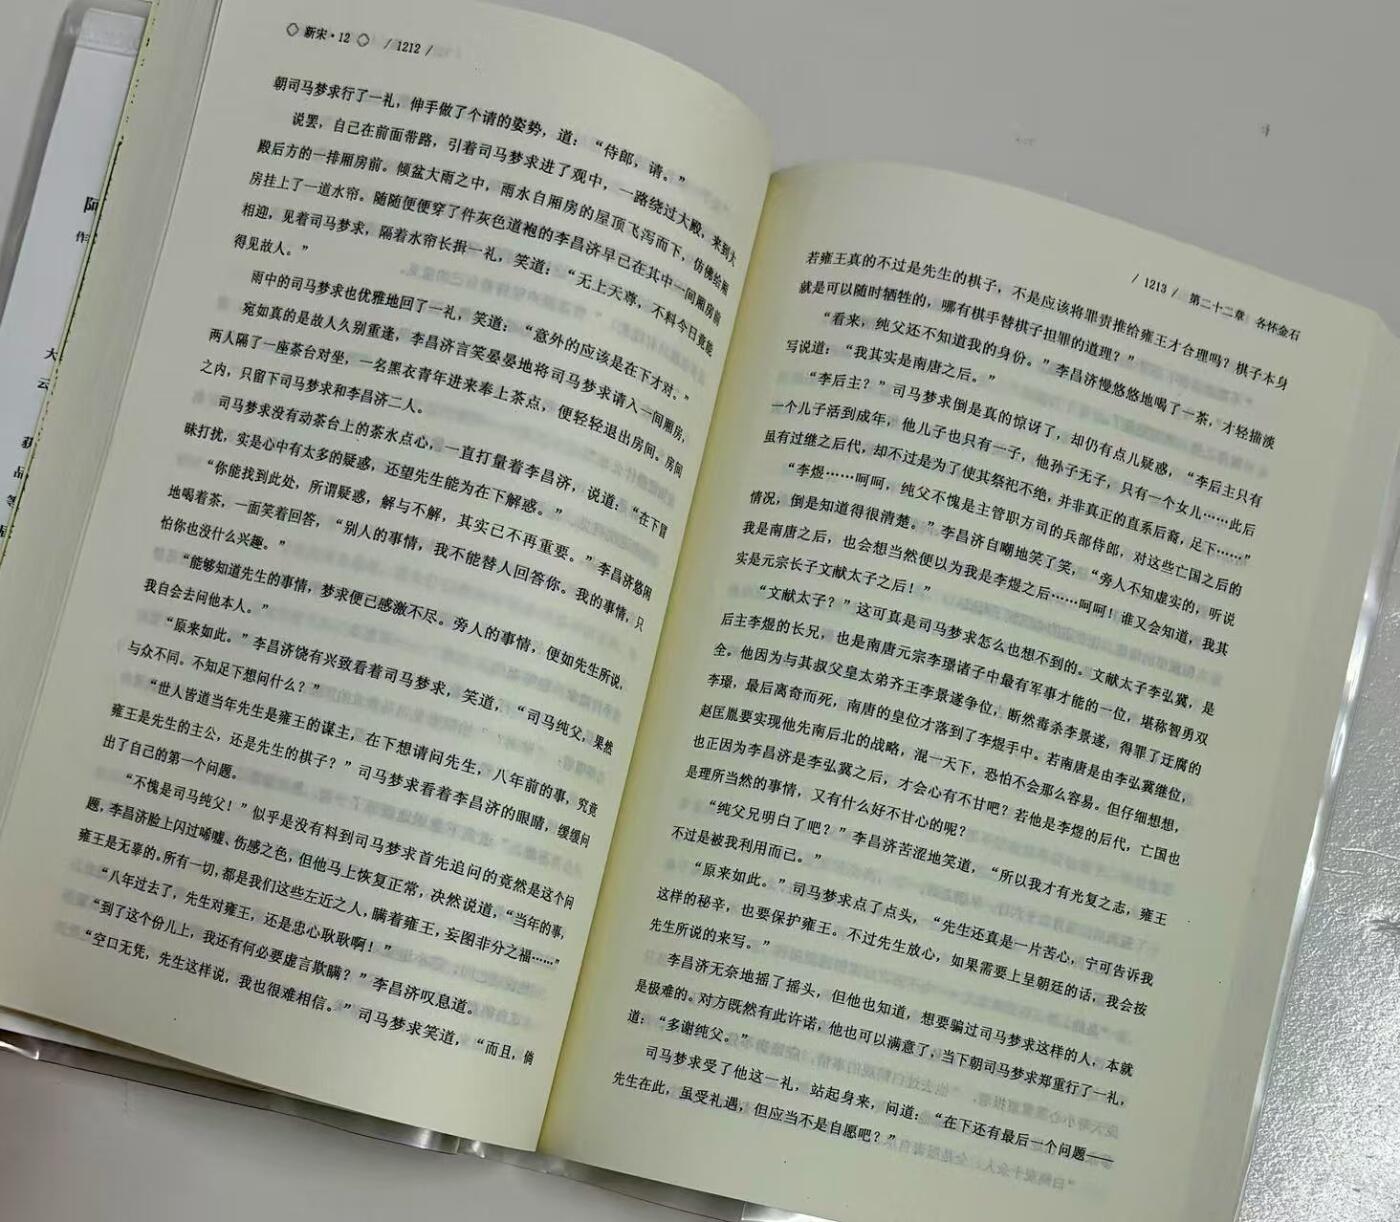 新宋·12 /1212/
朝司马梦求行了一礼，伸手做了个请的姿势，道：“侍郎，请。”
说罢，自己在前面带路，引着司马梦求进了观中，一路绕过大殿，来到大
殿后方的一排厢房前。倾盆大雨之中，雨水自厢房的屋顶飞泻而下，仿佛给厢
房挂上了一道水帘。随随便便穿了件灰色道袍的李昌济早已在其中一间厢房前
相迎，见着司马梦求，隔着水帘长揖一礼，笑道：“无上天尊，不料今日竟能
得见故人。”
雨中的司马梦求也优雅地回了一礼，笑道：“意外的应该是在下才对。”
宛如真的是故人久别重逢，李昌济言笑晏晏地将司马梦求请入一间厢房，
两人隔了一座茶台对坐，一名黑衣青年进来奉上茶点，便轻轻退出房间。房间
之内，只留下司马梦求和李昌济二人。
司马梦求没有动茶台上的茶水点心，一直打量着李昌济，说道：“在下冒
昧打扰，实是心中有太多的疑惑，还望先生能为在下解惑。”
“你能找到此处，所谓疑惑，解与不解，其实已不再重要。”李昌济悠闲
地喝着茶，一面笑着回答，“别人的事情，我不能替人回答你。我的事情，只
怕你也没什么兴趣。”
“能够知道先生的事情，梦求便已感激不尽。旁人的事情，便如先生所说，
我自会去问他本人。”
“原来如此。”李昌济饶有兴致看着司马梦求，笑道，“司马纯父，果然
与众不同。不知足下想问什么？”
“世人皆道当年先生是雍王的谋主，在下想请问先生，八年前的事，究竟
雍王是先生的主公，还是先生的棋子？”司马梦求看着李昌济的眼睛，缓缓问
出了自己的第一个问题。
“不愧是司马纯父！”似乎是没有料到司马梦求首先追问的竟然是这个问
题，李昌济脸上闪过唏嘘、伤感之色，但他马上恢复正常，决然说道，“当年的事，
雍王是无辜的。所有一切，都是我们这些左近之人，瞒着雍王，妄图非分之福……”
“八年过去了，先生对雍王，还是忠心耿耿啊！”
“到了这个份儿上，我还有何必要虚言欺瞒？”李昌济叹息道。
“空口无凭，先生这样说，我也很难相信。”司马梦求笑道，“而且，倘
/1213/ 第二十二章 各怀金石
若雍王真的不过是先生的棋子，不是应该将罪责推给雍王才合理吗？棋子本身
就是可以随时牺牲的，哪有棋手替棋子担罪的道理？”
“看来，纯父还不知道我的身份。”李昌济慢悠悠地喝了一茶，才轻描淡
写说道：“我其实是南唐之后。”
“李后主？”司马梦求倒是真的惊讶了，却仍有点儿疑惑，“李后主只有
一个儿子活到成年，他儿子也只有一子，他孙子无子，只有一个女儿……此后
虽有过继之后代，却不过是为了使其祭祀不绝，并非真正的直系后裔，足下……”
“李煜……呵呵，纯父不愧是主管职方司的兵部侍郎，对这些亡国之后的
情况，倒是知道得很清楚。”李昌济自嘲地笑了笑，“旁人不知虚实的，听说
我是南唐之后，也会想当然便以为我是李煜之后……呵呵！谁又会知道，我其
实是元宗长子文献太子之后！”
“文献太子？”这可真是司马梦求怎么也想不到的。文献太子李弘冀，是
后主李煜的长兄，也是南唐元宗李璟诸子中最有军事才能的一位，堪称智勇双
全。他因为与其叔父皇太弟齐王李景遂争位，断然毒杀李景遂，得罪了迂腐的
李璟，最后离奇而死，南唐的皇位才落到了李煜手中。若南唐是由李弘冀继位，
赵匡胤要实现他先南后北的战略，混一天下，恐怕不会那么容易。但仔细想想，
也正因为李昌济是李弘冀之后，才会心有不甘吧？若他是李煜的后代，亡国也
是理所当然的事情，又有什么好不甘心的呢？
“纯父兄明白了吧？”李昌济苦涩地笑道，“所以我才有光复之志，雍王
不过是被我利用而已。”
“原来如此。”司马梦求点了点头，“先生还真是一片苦心，宁可告诉我
这样的秘辛，也要保护雍王。不过先生放心，如果需要上呈朝廷的话，我会按
先生所说的来写。”
李昌济无奈地摇了摇头，但他也知道，想要骗过司马梦求这样的人，本就
是极难的。对方既然有此许诺，他也可以满意了，当下朝司马梦求郑重行了一礼，
道：“多谢纯父。”
司马梦求受了他这一礼，站起身来，问道：“在下还有最后一个问题——
先生在此，虽受礼遇，但应当不是自愿吧？”